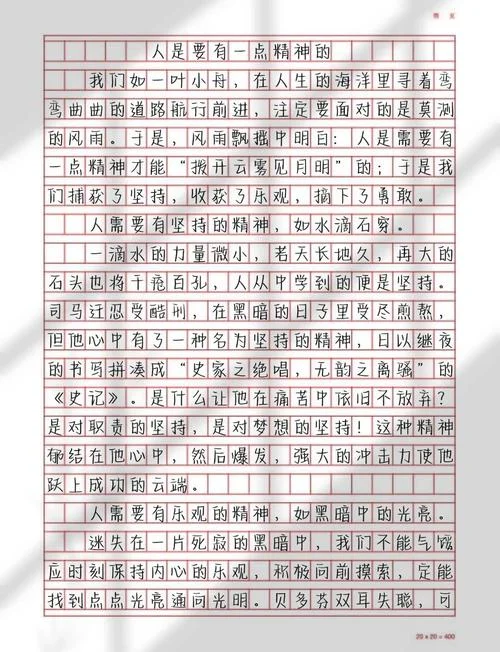 人是要有一点精神的
我们如一叶小舟，在人生的海洋里寻着弯
弯曲曲的道路航行前进，注定要面对的是莫测
的风雨。于是，风雨飘摇中明白：人是需要有
一点精神才能“拨开云雾见月明”的；于是我
们捕获了坚持，收获了乐观，摘下了勇敢。
人需要有坚持的精神，如水滴石穿。
一滴水的力量微小，若天长地久，再大的
石头也将千疮百孔，人从中学到的便是坚持。
司马迁忍受酷刑，在黑暗的日子里受尽煎熬，
但他心中有了一种名为坚持的精神，日以继夜
的书写拼凑成“史家之绝唱，无韵之离骚”的
《史记》。是什么让他在痛苦中依旧不放弃？
是对职责的坚持，是对梦想的坚持！这种精神
郁结在他心中，然后爆发，强大的冲击力使他
跃上成功的云端。
人需要有乐观的精神，如黑暗中的光亮。
迷失在一片死寂的黑暗中，我们不能气馁
应时刻保持内心的乐观，积极向前摸索，定能
找到点点光亮通向光明。贝多芬双耳失聪，可
20x20=400